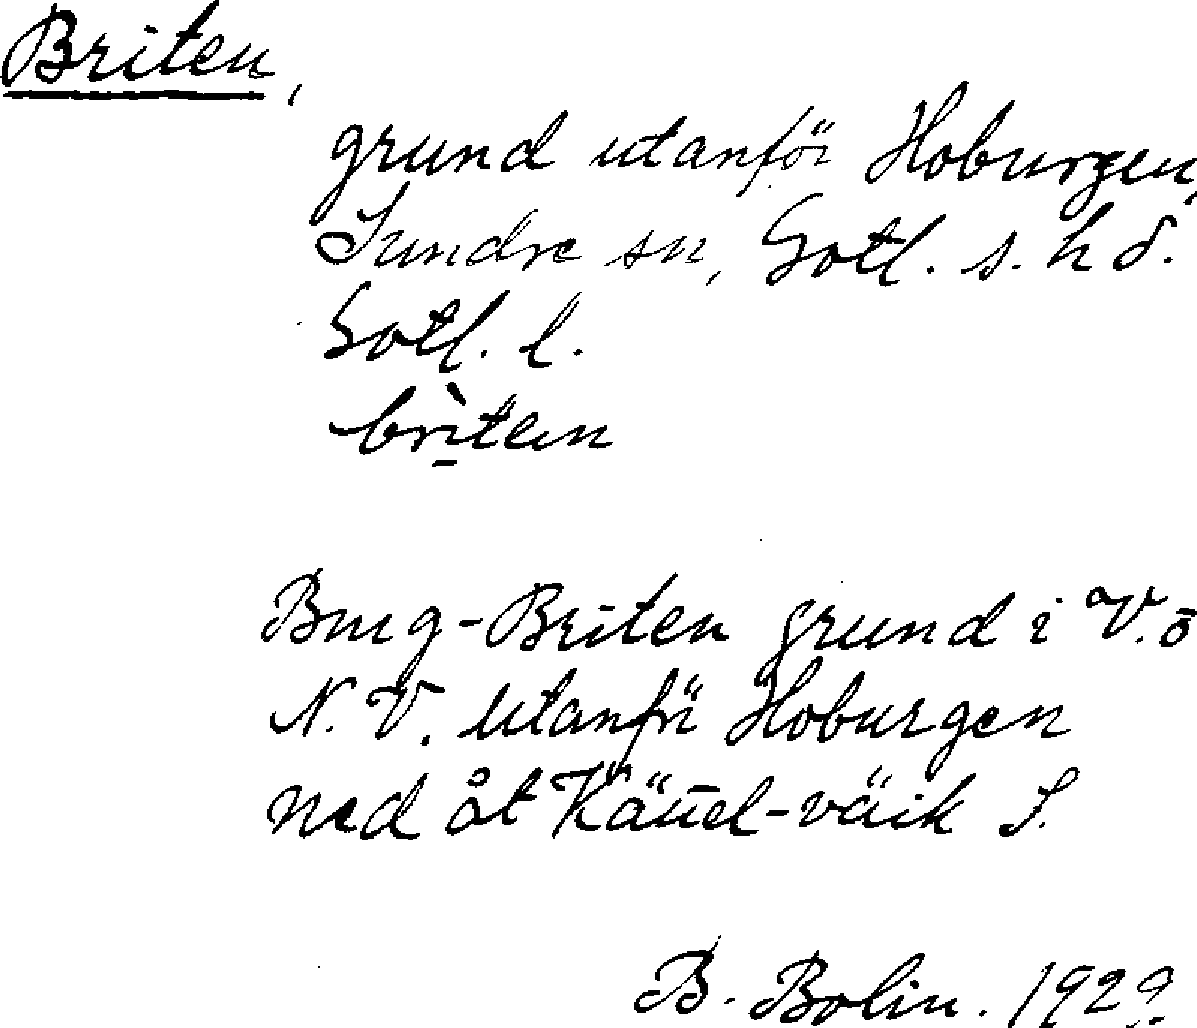 Briten,
grund utanför Hoburgen,
Sundre sn, Gotl. s. hd.
Gotl. l.
brìtein
Burg-Briten grund i V. o
N. V. utanför Hoburgen
ned åt Kättel-väik S.
B. Bolin. 1929.